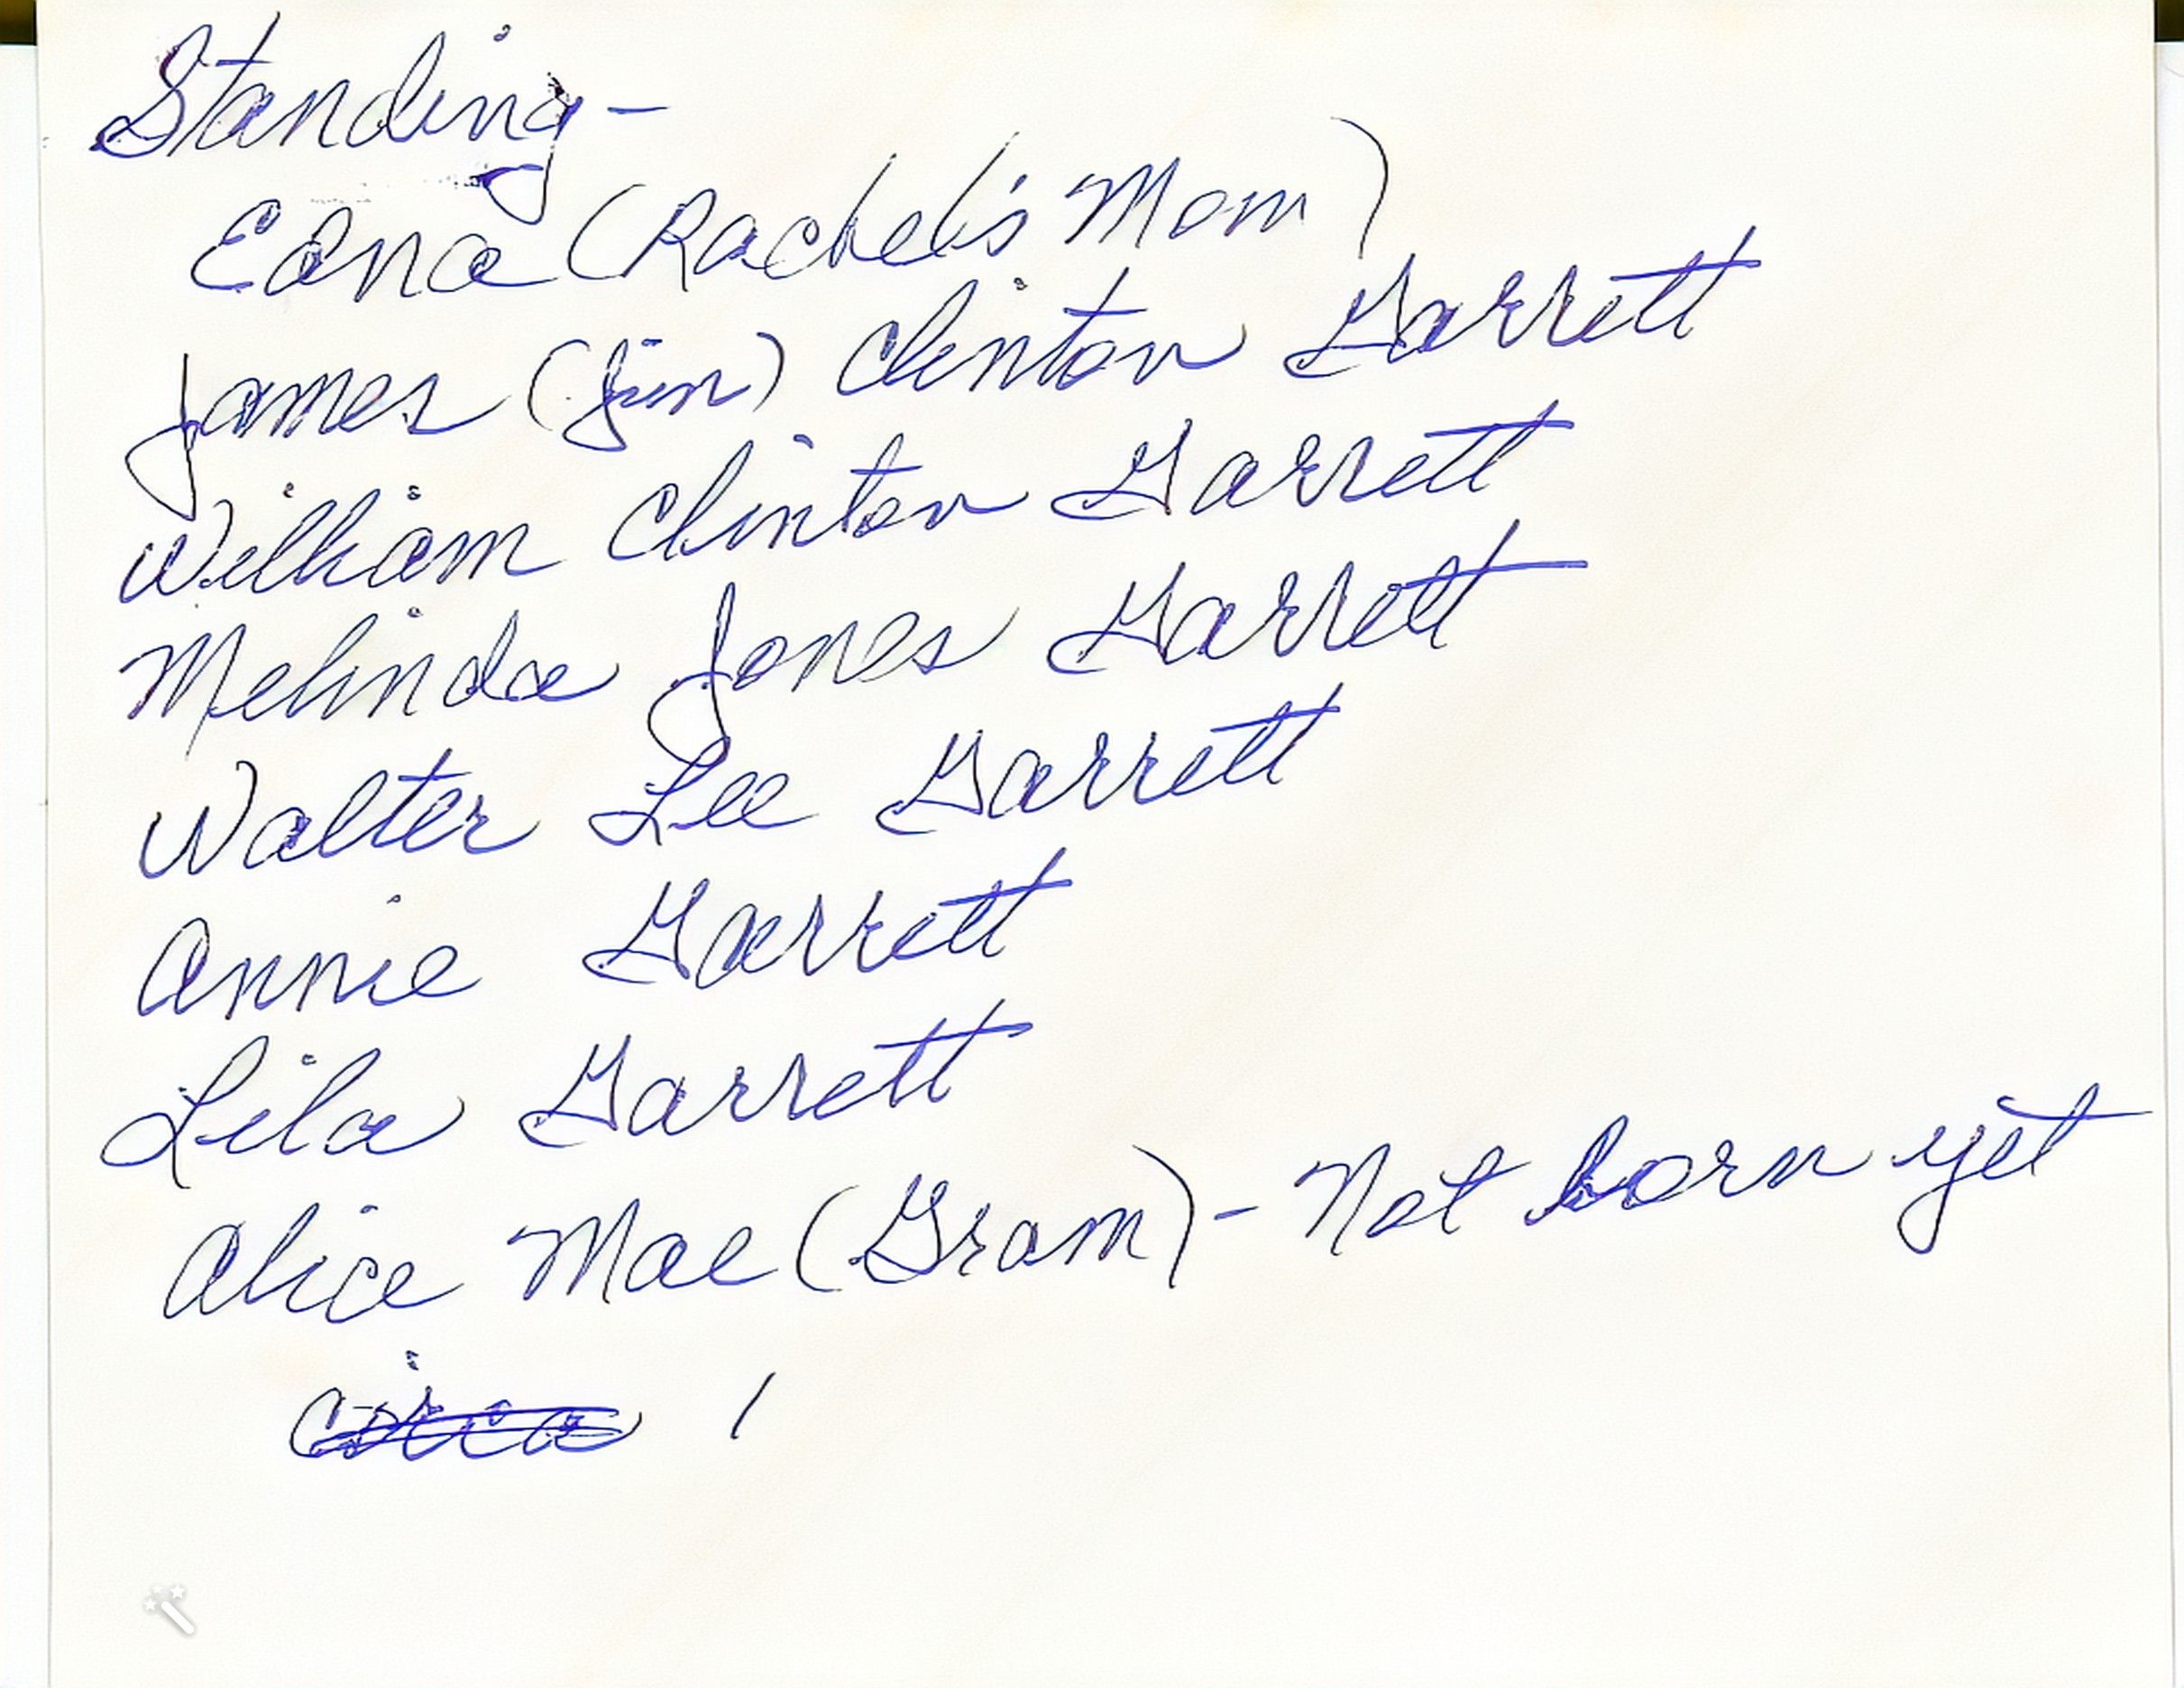 Standing-
Edna (Rachel's Mom)
James (Jim) Clinton Garrett
William Clinton Garrett
Melinda Jones Garrett
Walter Lee Garrett
Annie Garrett
Lila Garrett
Alice Mae (Gram) - Not born yet
circa /